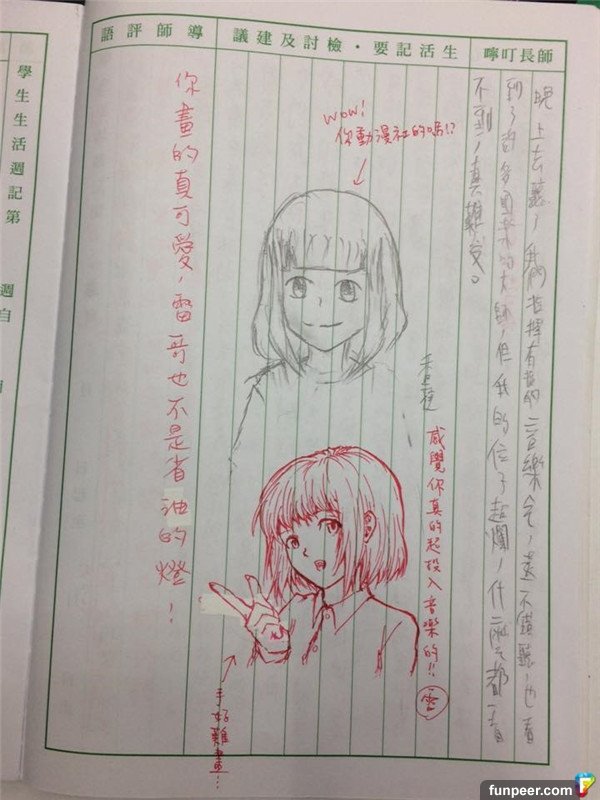 師長叮嚀
生活記要·檢討及建議
導師評語
晚上去聽了我們指揮有指的音樂會,還不錯聽,也看
到了許多國樂的大師,但我的位子超爛,什麼都看
不到,真難受。
wow!
你動漫社的嗎!?
感覺你真的超投入音樂的!!
雷
手好難畫…
你畫的真可愛,雷哥也不是省油的燈!
學生生活週記第
週自
funpeer.com